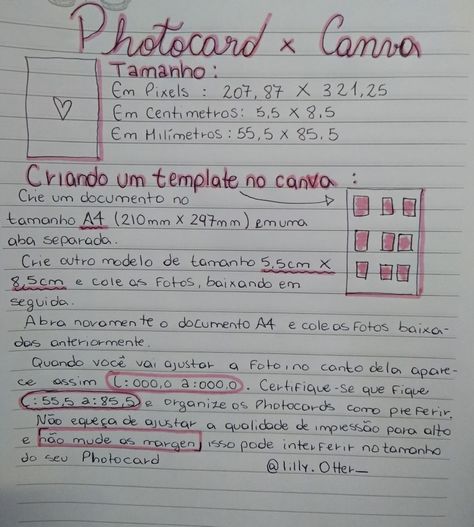 Photocard x Canva
Tamanho:
Em Pixels : 207,87 X 321,25
Em Centimetros: 5,5 x 8,5
Em Milímetros: 55,5 x 85,5
Criando um template no canva :
Crie um documento no
tamanho A4 (210mm X 297mm) em uma
aba separada.
Crie outro modelo de tamanho 5,5cm X
8,5cm e cole as fotos, baixando em
seguida.
Abra novamente o documento A4 e cole as fotos baixa-
das anteriormente.
Quando você vai ajustar a foto, no canto dela apare-
ce assim (L:000,0 a:000,0). Certifique-se que fique
(:55,5 a:85,5) e organize os Photocards como preferir.
Não equȩa de ajustar a qualidade de impressão para alto
e não mude as margen, isso pode interferir no tamanho
do seu Photocard
@lilly.Otter_